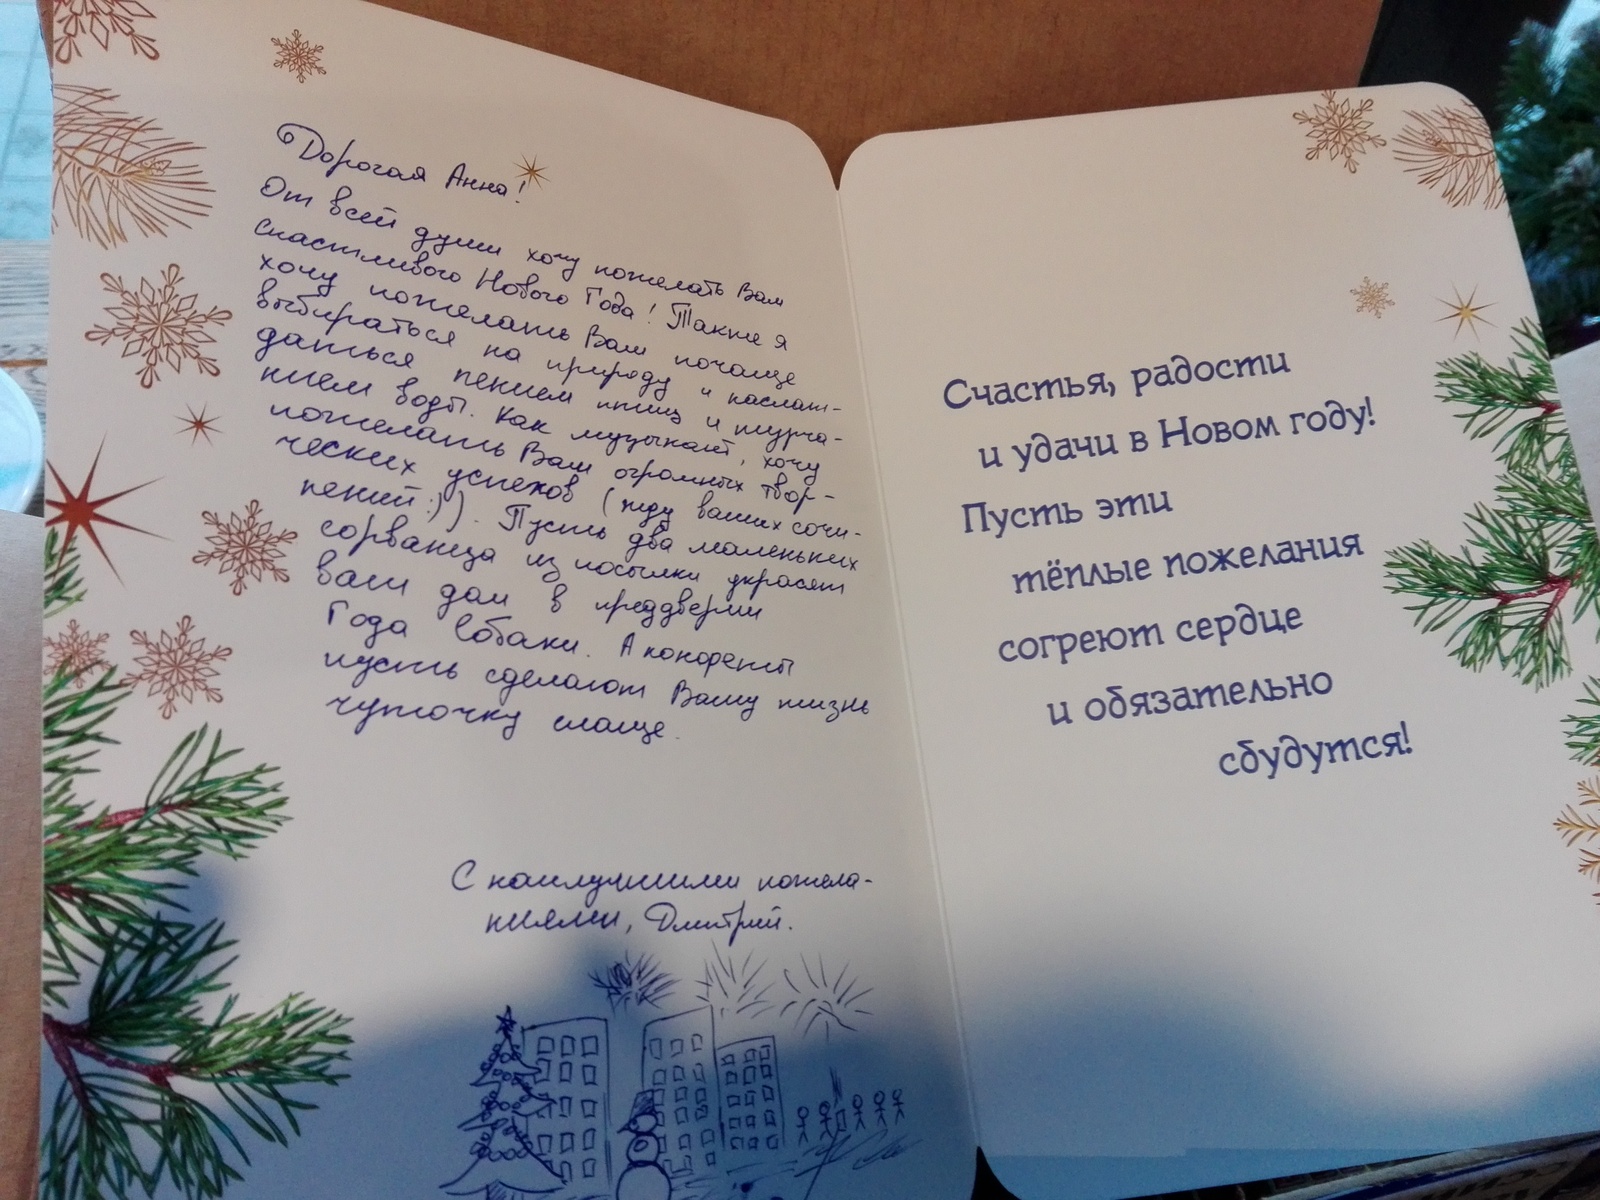 Дорогая Анна!
От всей души хочу пожелать Вам
счастливого Нового Года! Также я
хочу пожелать Вам почаще
выбираться на природу и наслаж-
даться пением птиц и журча-
нием воды. Как музыкант, хочу
пожелать Вам огромных твор-
ческих успехов (жду ваших сочи-
нений :)). Пусть два маленьких
сорванца из посылки украсят
ваш дом в преддверии
Года Собаки. А конфеты
пусть сделают Вашу жизнь
чуточку слаще.
С наилучшими пожела-
ниями, Дмитрий.
Счастья, радости
и удачи в Новом году!
Пусть эти
тёплые пожелания
согреют сердце
и обязательно
сбудутся!